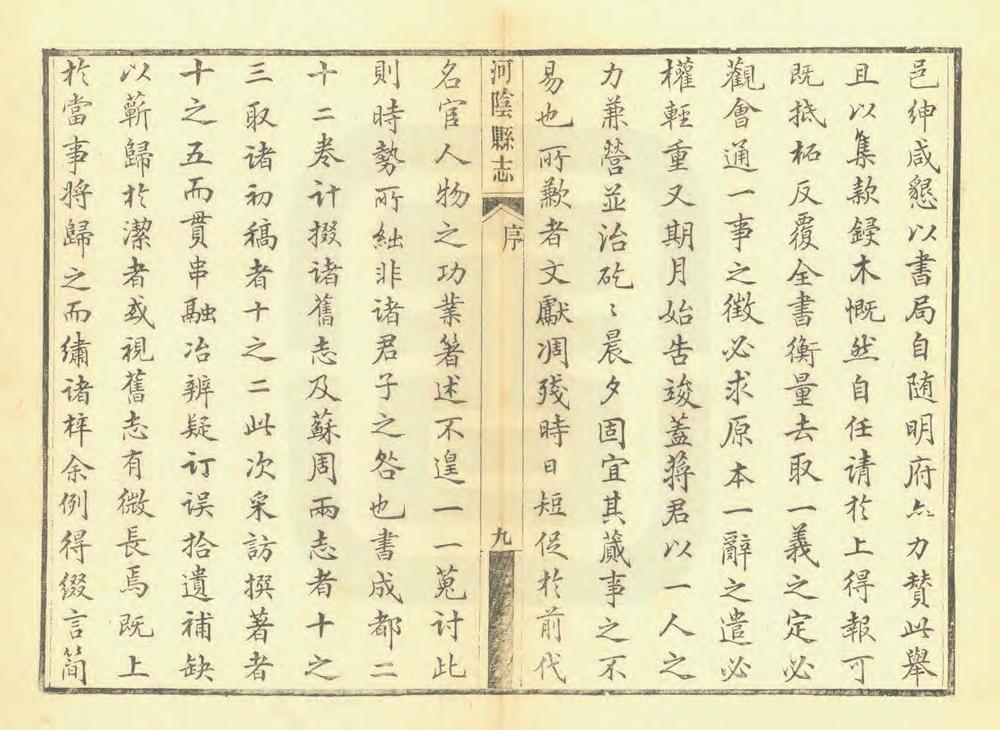 邑紳咸懇以書局自随明府亦力賛此舉
且以集款鋟木慨然自任请於上得報可
既抵柘反覆全書衡量去取一義之定必
觀會通一事之徵必求原本一辭之遣必
權輕重又期月始告竣蓋蔣君以一人之
力兼營並治矻〻晨夕固宜其蕆事之不
易也所歉者文獻凋殘時日短促於前代
河陰縣志
序
九
名宦人物之功業著述不遑一一蒐討此
則時勢所絀非诸君子之咎也書成都二
十二卷计掇诸舊志及蘇周兩志者十之
三取诸初稿者十之二此次采訪撰著者
十之五而貫串融冶辨疑订误拾遺補缺
以蘄歸於潔者或視舊志有微長焉既上
於當事将歸之而繡诸梓余例得綴言簡